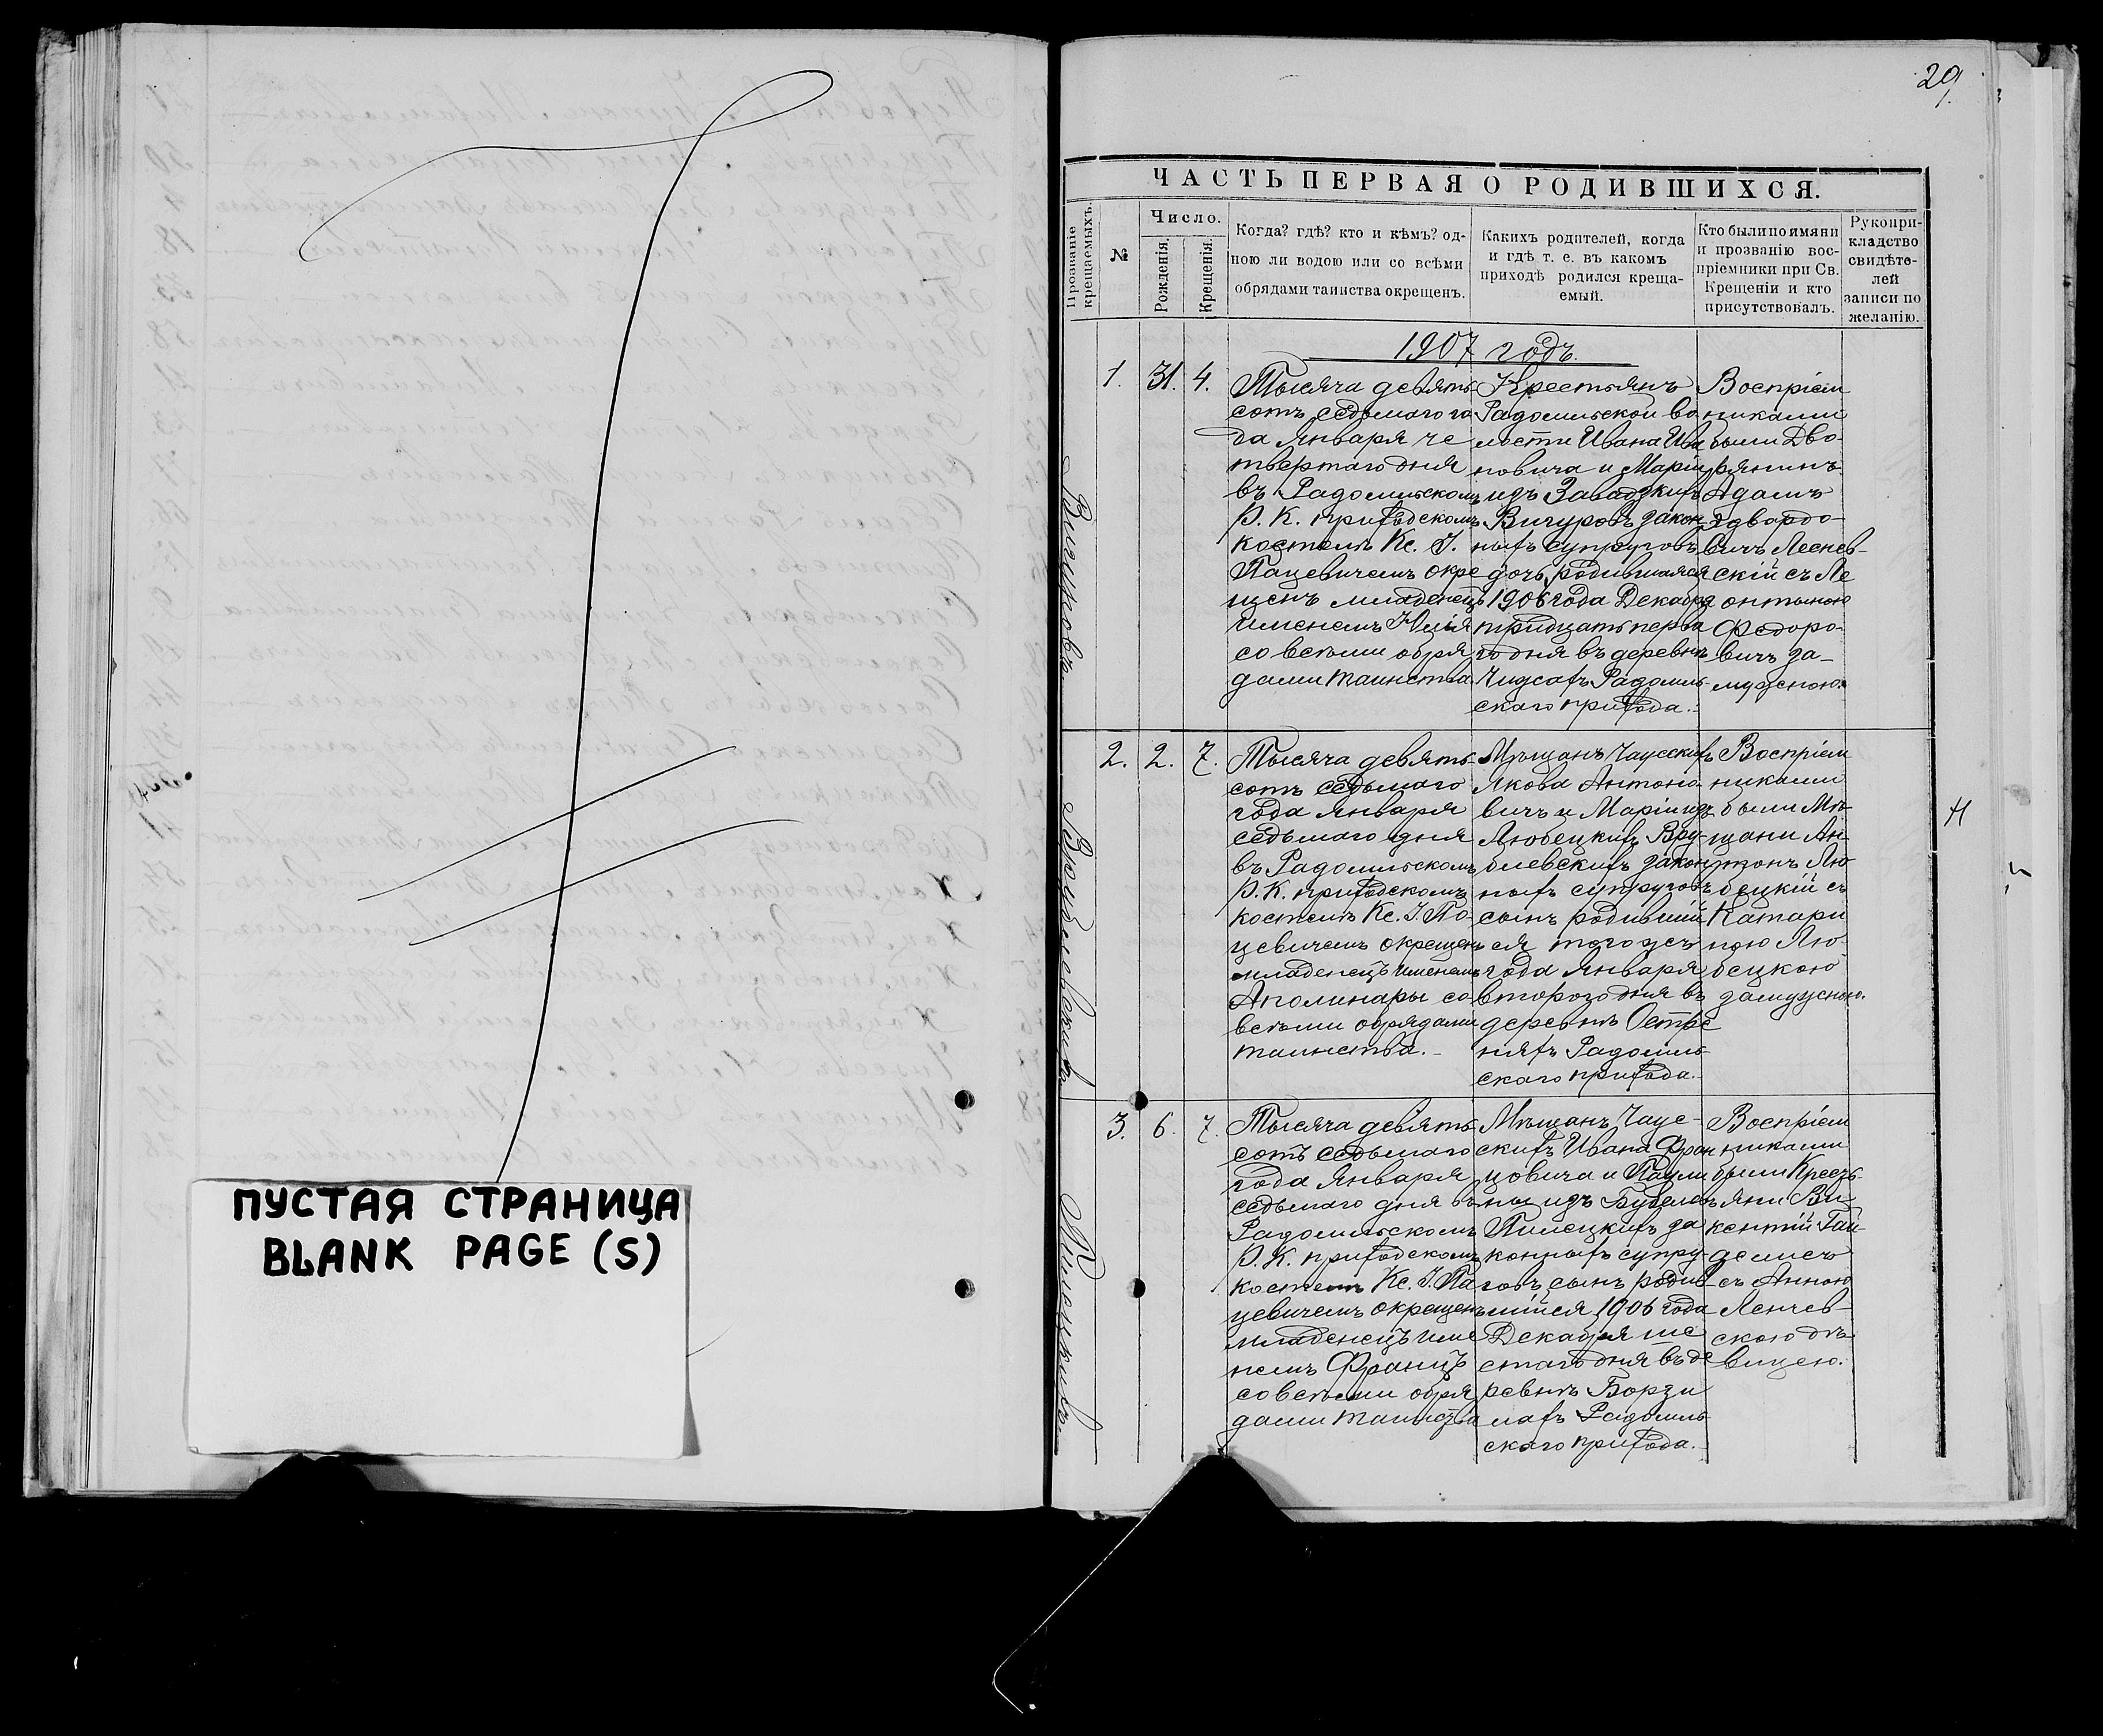 ПУСТАЯ СТРАНИЦА
BLANK PAGE (S)
29
ЧАСТЬ ПЕРВАЯ О РОДИВШИХСЯ.
Прозваніе крещаемыхъ.
№
Число.
Рожденія.
Крещенія.
Когда? гдѣ? кто и кѣмъ? од-
ною ли водою или со всѣми
обрядами таинства окрещенъ.
Какихъ родителей, когда
и гдѣ т. е. въ какомъ
приходѣ родился креща-
емый.
Кто были по имяни
и прозванію вос-
пріемники при Св.
Крещеніи и кто
присутствовалъ.
Рукопри-
кладство
свидѣте-
лей
записи по
желанію.
1907 годъ.
Вигуровъ
1.
31.
4.
Тысяча девять
сотъ седьмаго го
да Января че
твертаго дня
въ Радомльскомъ
Р. К. приходскомъ
костелѣ Кс. І.
Пацевичемъ окре
щенъ младенецъ
именемъ Юлія
со всѣми обря
дами таинства
Крестьянъ
Радомльской во
лости Ивана Ива
новича и Маріи
изъ Завадзкихъ
Вигуровъ закон
ныхъ супруговъ
дочь, родившаяся
1906 года Декабря
тридцать перва
го дня въ деревнѣ
Радомль-
скаго прихода.
Воспріем
никами
были Дво-
рянинъ
Адамъ
Эдвардо-
вичъ Леснев-
скій съ Ле
онтиною
Федоро-
вичъ за-
мужною.
Врублевскихъ
2.
2.
7.
Тысяча девять
сотъ седьмаго
года Января
седьмаго дня
въ Радомльскомъ
Р. К. приходскомъ
костелѣ Кс. І. Па-
цевичемъ окрещенъ
младенецъ именемъ
Аполинары со
всѣми обрядами
таинства.
Мѣщанъ Чаусскихъ
Якова Антоно
вичъ и Маріи изъ
Любецкихъ Вру-
блевскихъ закон
ныхъ супруговъ
сынъ родившій
ся того же
года Января
второго дня въ
деревнѣ
Радомль-
скаго прихода.
Воспріем
никами
были Мѣ-
щани Ан
тонъ Лю
бецкій съ
Катари
ною Лю-
бецкою
замужною.
Н
Пилецкихъ
3.
6.
7.
Тысяча девять
сотъ седьмаго
года Января
седьмаго дня въ
Радомльскомъ
Р. К. приходскомъ
костелѣ Кс. І. Па
цевичемъ окрещенъ
младенецъ име
немъ Францъ
со всѣми обря
дами таинства
Мѣщанъ Чаус-
скихъ Ивана Фран
цовича и Паули
ны изъ
Пилецкихъ за
конныхъ супру-
говъ сынъ родив
шійся 1906 года
Декабря ше
стаго дня въ де
ревнѣ Борзи
лахъ Радомль
скаго прихода.
Воспріем
никами
были Кресть-
яни Ви
кентій
съ Анною
Ленчев-
скою дѣ
вицею.